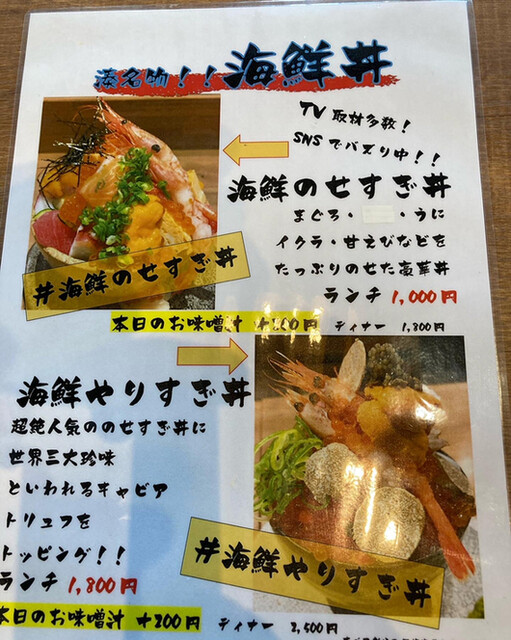 湊名物!! 海鮮丼
TV取材多数!
SNSでバズり中!!
海鮮のせすぎ丼
まぐろ・ ・うに
イクラ・甘えびなどを
たっぷりのせた豪華丼
ランチ 1,000円
#海鮮のせすぎ丼
本日のお味噌汁 +200円 ディナー 1,800円
海鮮やりすぎ丼
超絶人気ののせすぎ丼に
世界三大珍味
といわれるキャビア
トリュフを
トッピング!!
ランチ 1,800円
#海鮮やりすぎ丼
本日のお味噌汁 +200円 ディナー 2,500円